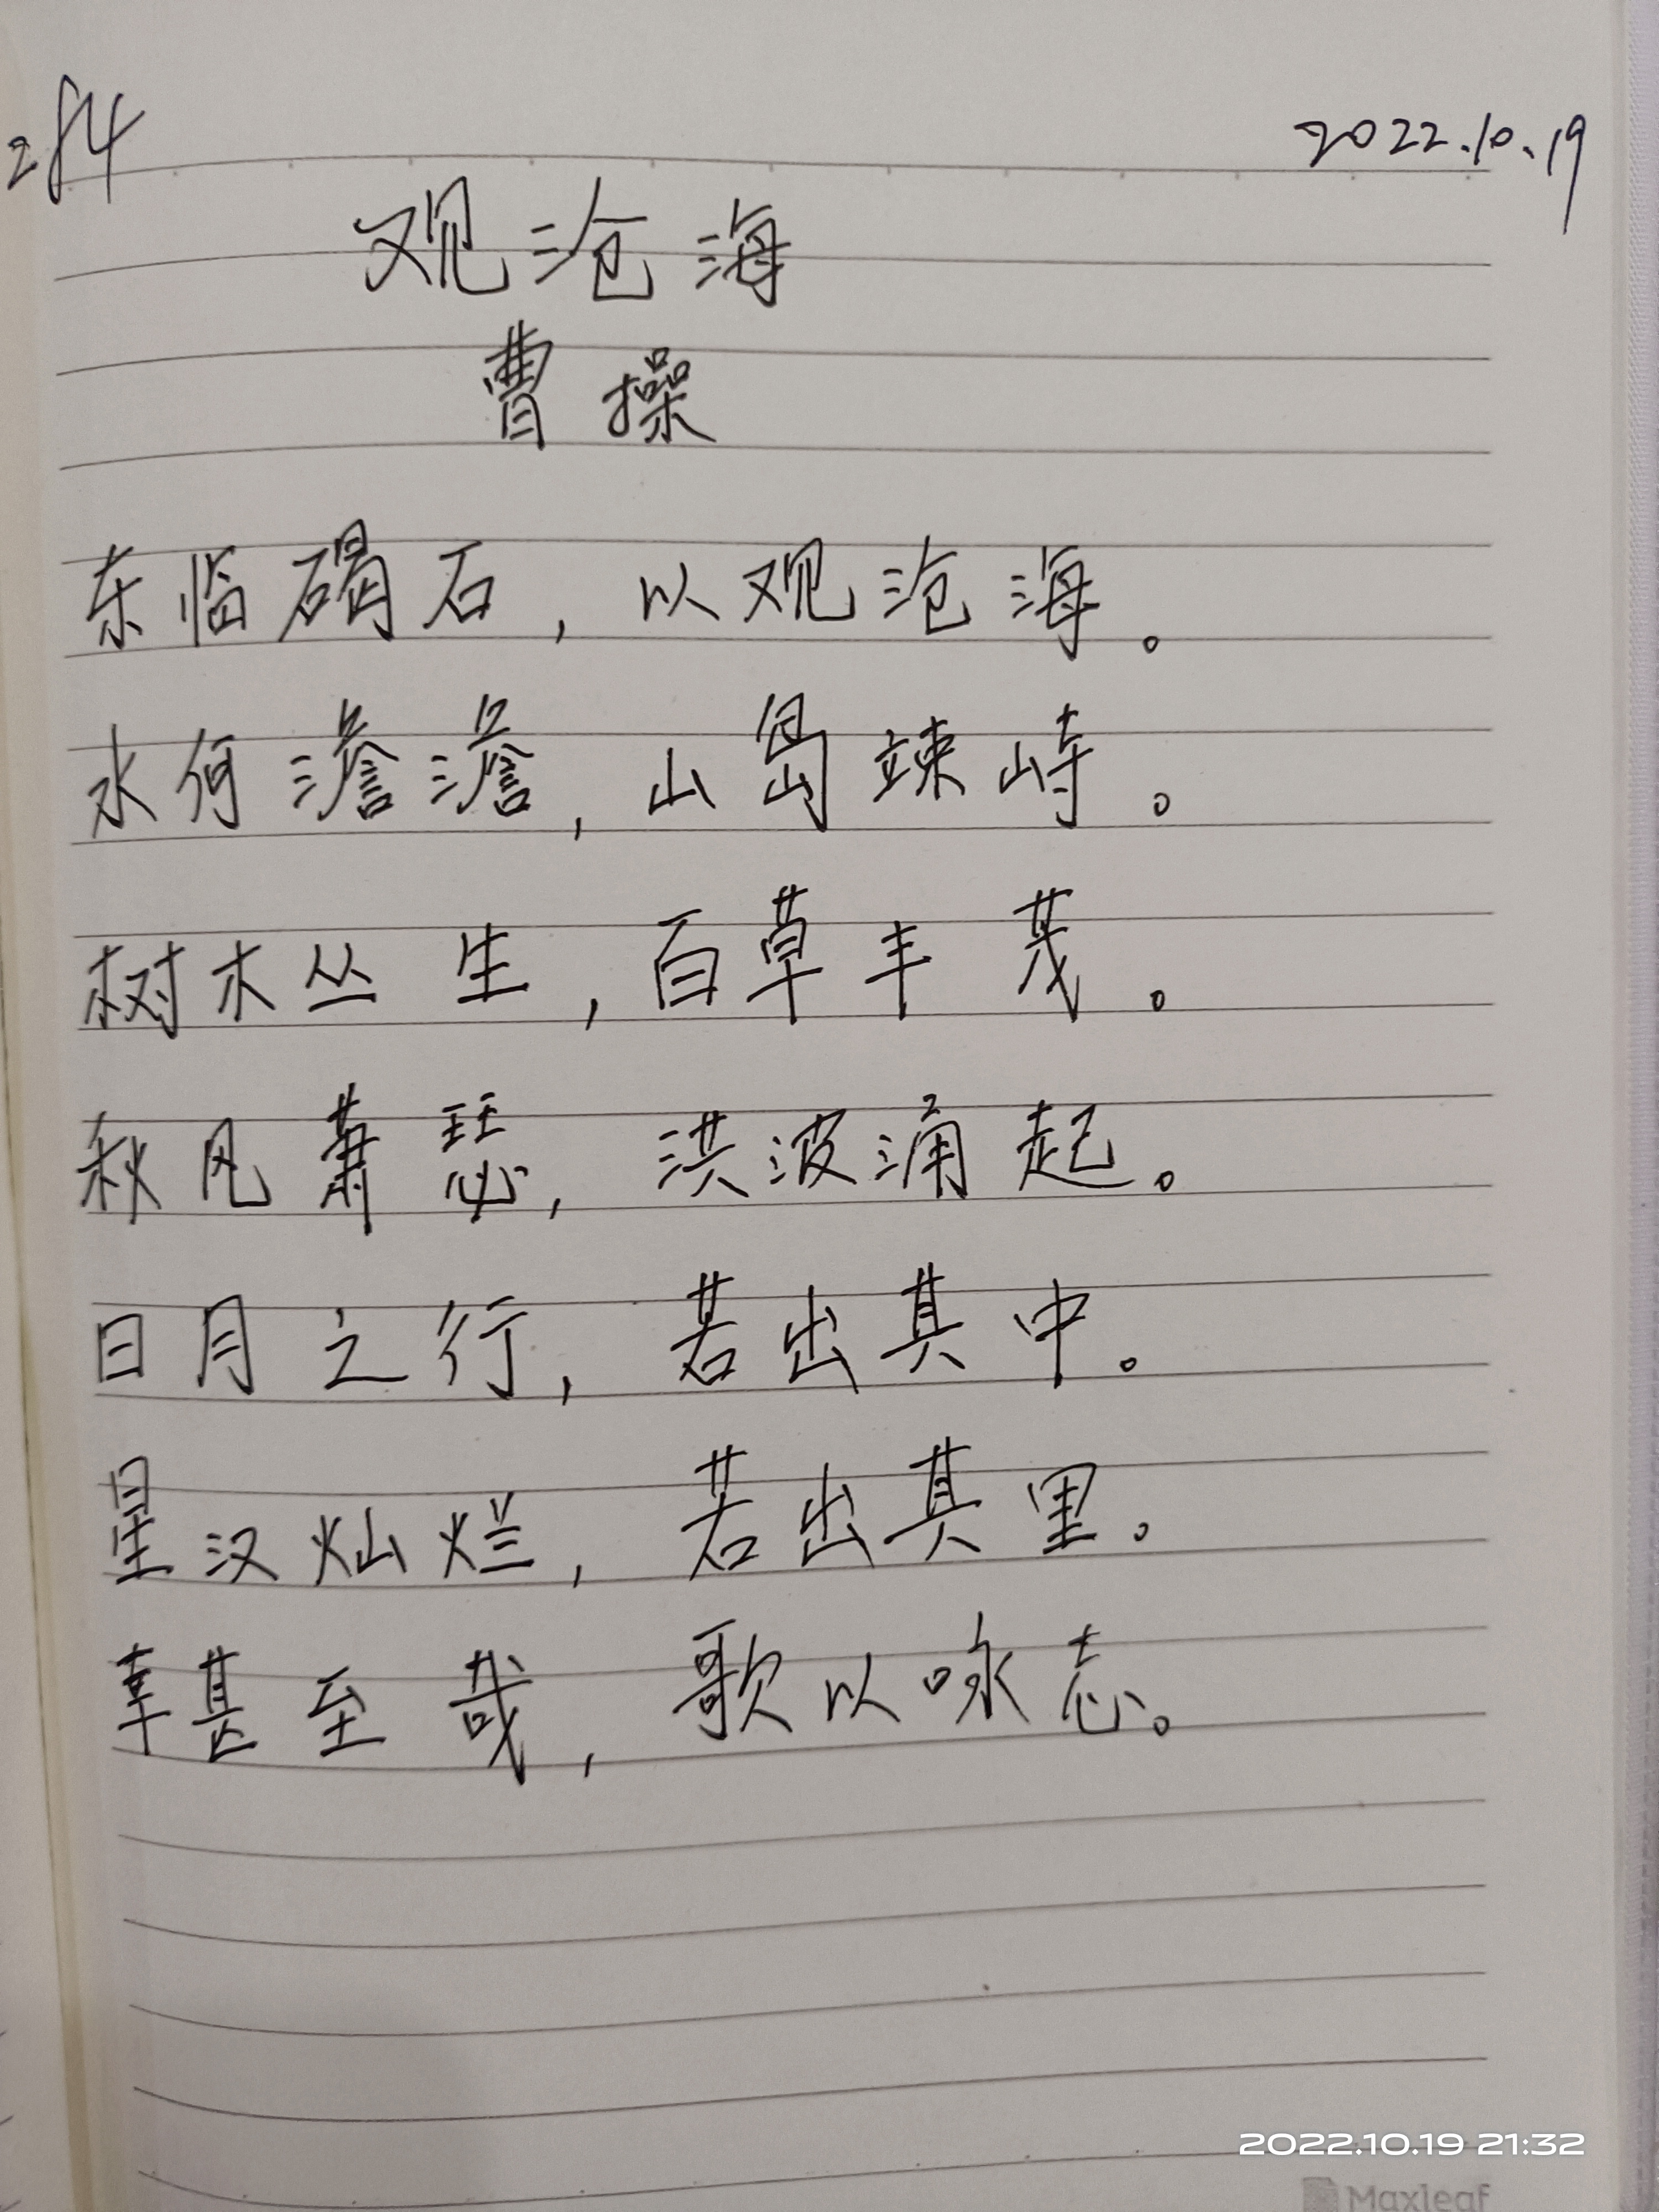 284 2022.10.19
观沧海
曹操
东临碣石，以观沧海。
水何澹澹，山岛竦峙。
树木丛生，百草丰茂。
秋风萧瑟，洪波涌起。
日月之行，若出其中。
星汉灿烂，若出其里。
幸甚至哉，歌以咏志。
2022.10.19 21:32
Maxleaf